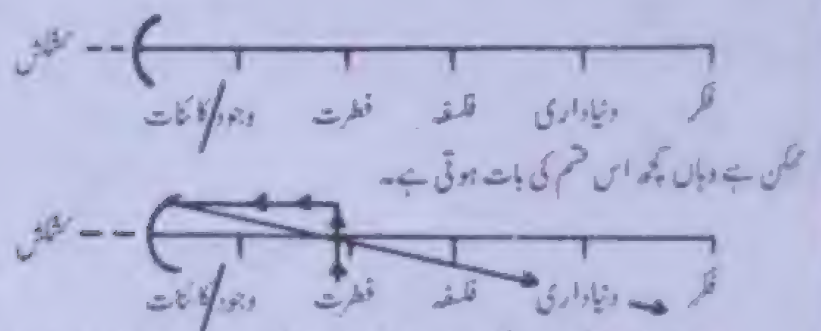 کشمکش
فکر دنیاداری فلسفہ فطرت وجود/کائنات
ممکن ہے وہاں کچھ اس قسم کی بات ہوتی ہے۔
کشمکش
فکر دنیاداری فلسفہ فطرت وجود/کائنات